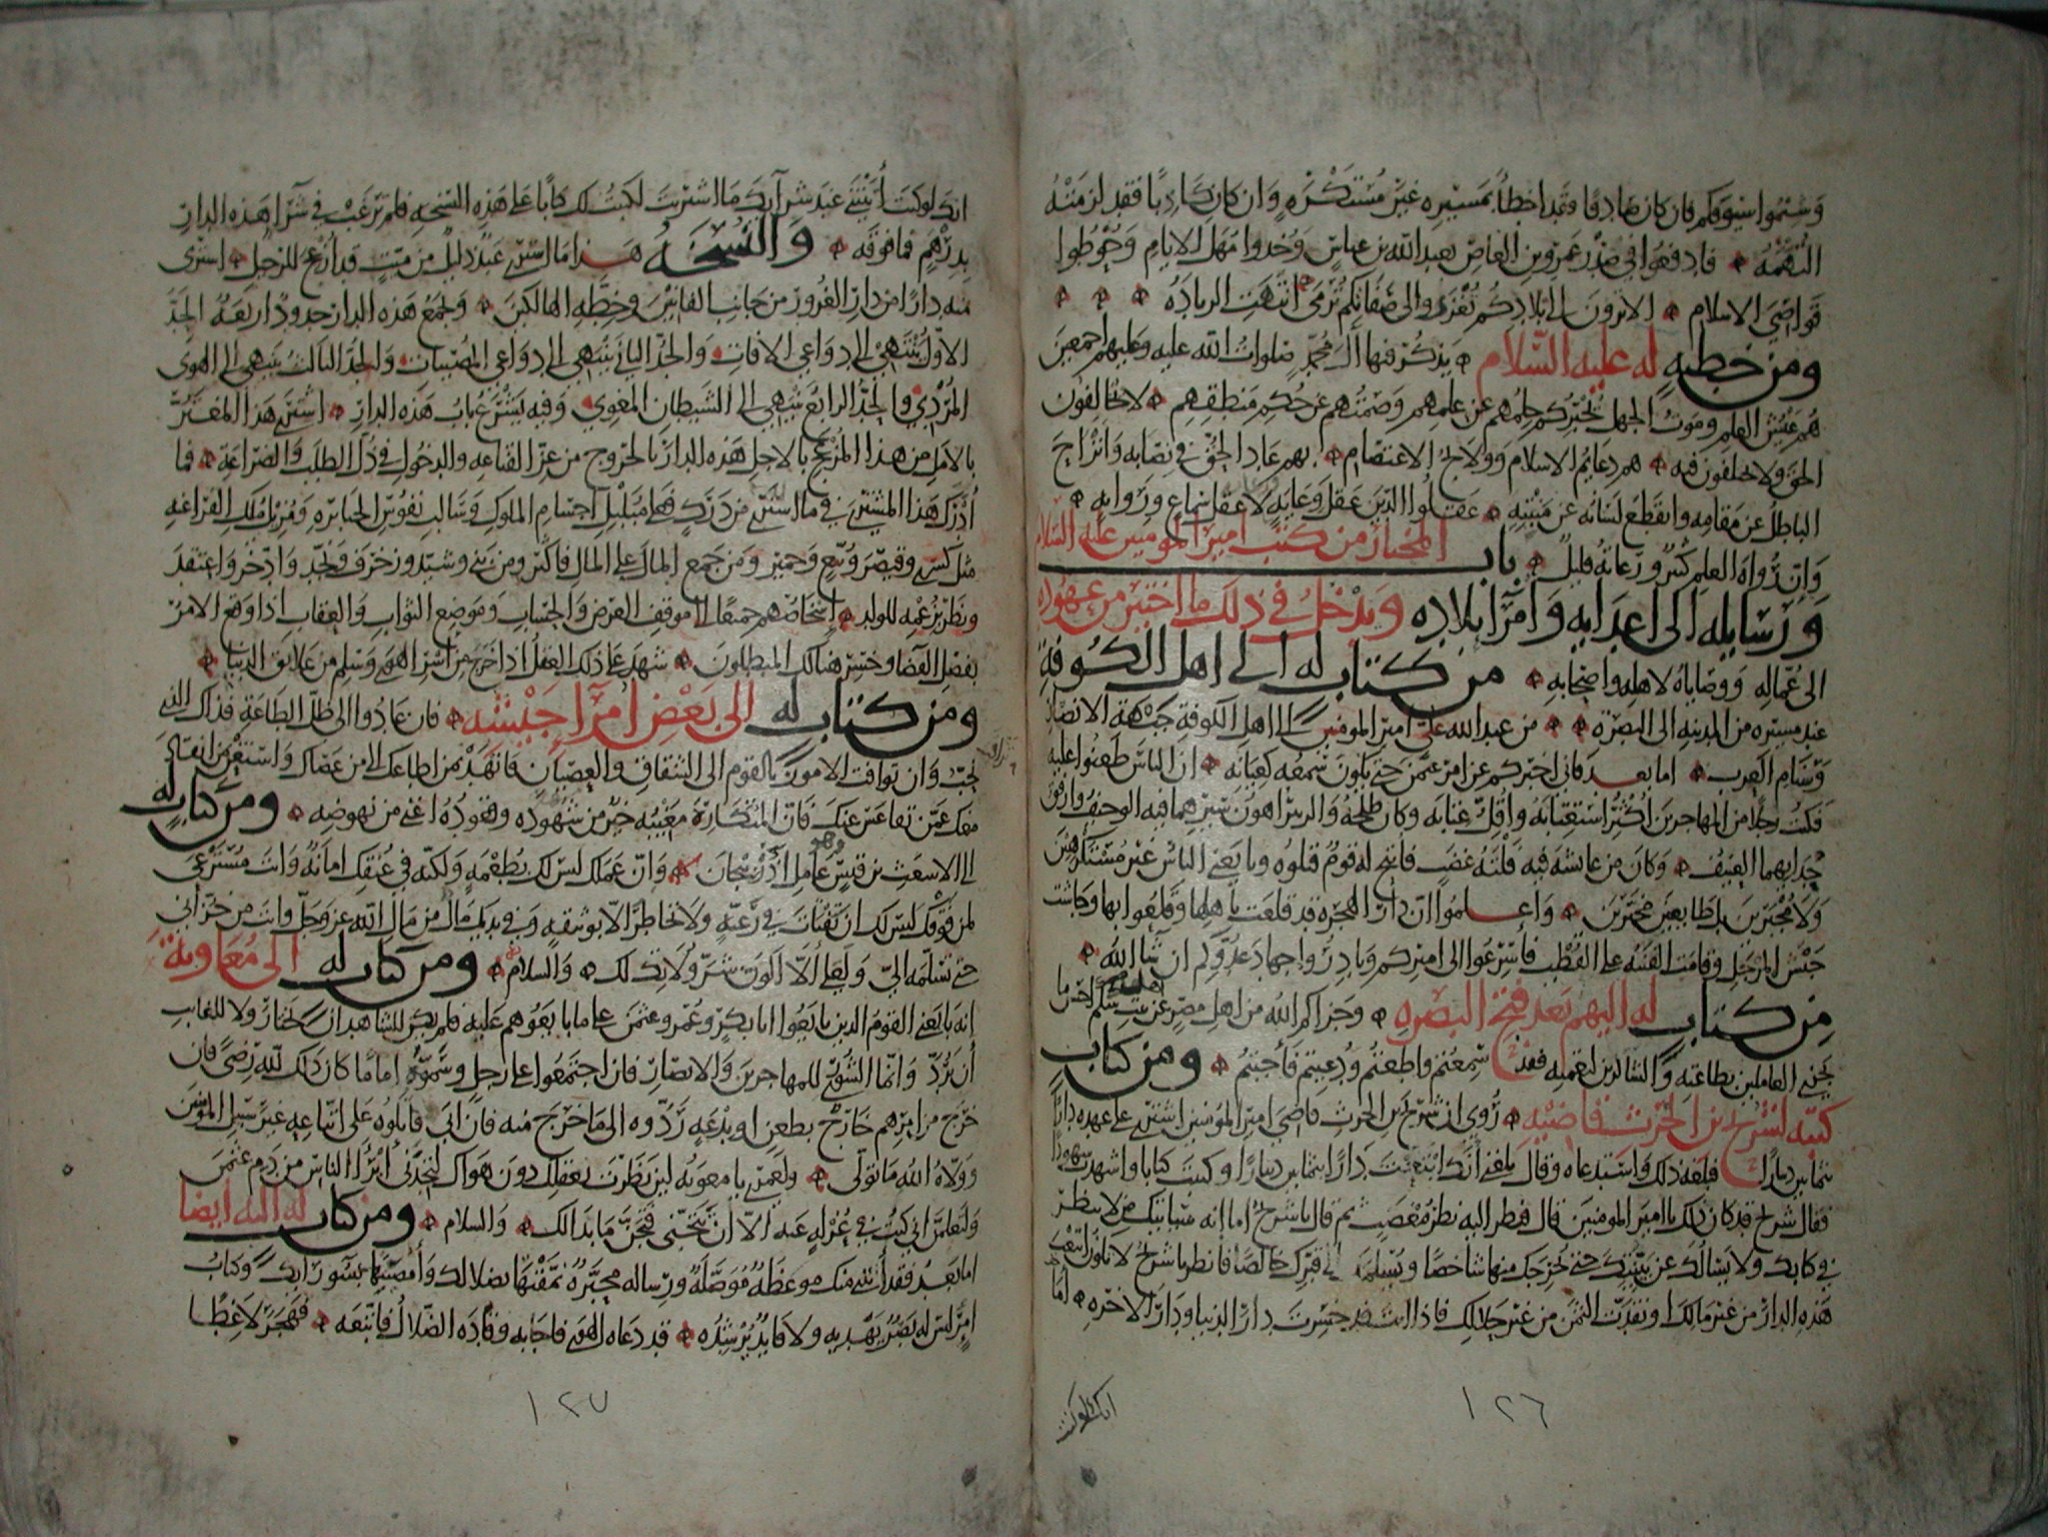 وشيموا سيوفكم فان كان صادقا فقد اخطأ بمسيره غير مستكره وان كان كاذبا فقد لزمته
التهمه فادفعوا في صدر عمرو بن العاص بعبد الله بن عباس وخذوا مهل الايام وحوطوا
قواصي الاسلام الا ترون الى بلادكم تغزى والى صفاتكم ترمى انتهت الزياده
ومن خطبه له عليه السلام يذكر فيها آل محمد صلوات الله عليه وعليهم اجمعين
هم عيش العلم وموت الجهل يخبركم حلمهم عن علمهم وصمتهم عن حكم منطقهم لا يخالفون
الحق ولا يختلفون فيه هم دعايم الاسلام وولايج الاعتصام بهم عاد الحق في نصابه وانزاح
الباطل عن مقامه وانقطع لسانه عن منبته عقلوا الدين عقل وعايه لا عقل سماع وروايه
وان رواه العلم كثير ورعاته قليل باب المختار من كتب امير المومنين عليه السلام
ورسايله الى اعدايه وامرا بلاده ويدخل في ذلك ما اختير من عهوده
الى عماله ووصاياه لاهله واصحابه من كتاب له الى اهل الكوفة
عند مسيره من المدينه الى البصرة من عبد الله علي امير المومنين الى اهل الكوفة جبهة الانصار
وسنام العرب اما بعد فاني اخبركم عن امر عثمن حتى يكون سمعه كعيانه ان الناس طعنوا عليه
فكنت رجلا من المهاجرين اكثر استعتابه واقل عتابه وكان طلحة والزبير اهون سيرهما فيه الوجيف وارفق
حدايهما العنيف وكان من عايشه فيه فلته غضب فاتيح له قوم قتلوه وبايعني الناس غير مستكرهين
ولا مجبرين بل طايعين مخيرين واعلموا ان دار الهجره قد قلعت باهلها وقلعوا بها وجاشت
جيش المرجل وقامت الفتنه على القطب فاسرعوا الى اميركم وبادروا جهاد عدوكم ان شا الله
من كتاب له اليهم بعد فتح البصره وجزاكم الله من اهل مصر عن اهل بيت نبيكم احسن ما
يجزي العاملين بطاعته والشاكرين لنعمته فقد سمعتم واطعتم ودعيتم فاجبتم ومن كتاب
كتبه لشريح بن الحرث قاضيه روي ان شريح بن الحرث قاضي امير المومنين اشترى على عهده دارا
بثمانين دينارا فبلغه ذلك واستدعاه وقال بلغني انك ابتعت دارا بثمانين دينارا وكتبت كتابا واشهدت شهودا
فقال شريح قد كان ذلك يا امير المومنين قال فنظر اليه نظر مغضب ثم قال يا شريح اما انه سياتيك من لا ينظر
في كتابك ولا يسالك عن بينتك حتى يخرجك منها شاخصا ويسلمك الى قبرك خالصا فانظر يا شريح لا تكون ابتعت
هذه الدار من غير مالك او نقدت الثمن من غير حلالك فاذا انت قد خسرت دار الدنيا ودار الاخره اما
انك لو كنت
١٢٦
انك لو كنت أتيتني عند شرآيك ما اشتريت لكتبت لك كتابا على هذه النسخه فلم ترغب في شرآ هذه الدار
بدرهم فما فوقه والنسخه هذا ما اشترى عبد ذليل من ميت قد ازعج للرحيل اشترى
منه دارا من دار الغرور من جانب الفانين وخطه الهالكين وتجمع هذه الدار حدود اربعة الحد
الاول ينتهي الى دواعي الافات والحد الثاني ينتهي الى دواعي المصيبات والحد الثالث ينتهي الى الهوى
المردي والحد الرابع ينتهي الى الشيطان المغوي وفيه يشرع باب هذه الدار اشترى هذا المغتر
بالامل من هذا المزعج بالاجل هذه الدار بالخروج من عز القناعه والدخول في ذل الطلب والضراعة فما
ادرك هذا المشتري في ما اشترى من درك فعلى مبلبل اجسام الملوك وسالب نفوس الجبابره ومزيل ملك الفراعنه
مثل كسرى وقيصر وتبع وحمير ومن جمع المال على المال فاكثر ومن بنى وشيد وزخرف ونجد وادخر واعتقد
ونظر بزعمه للولد اشخاصهم جميعا الى موقف العرض والحساب وموضع الثواب والعقاب اذا وقع الامر
بفصل القضا وخسر هنالك المبطلون شهد على ذلك العقل اذا خرج من اسر الهوى وسلم من علايق الدنيا
ومن كتاب له الى بعض امرآ جيشه فان عادوا الى ظل الطاعة فذاك الذي
نحب وان توافت الامور بالقوم الى الشقاق والعصيان فانهد بمن اطاعك الى من عصاك واستغن بمن انقاد
معك عمن تقاعس عنك فان المتكاره مغيبه خير من شهوده وقعوده اغنى من نهوضه ومن كتاب له
الى الاشعث بن قيس وهو عامل اذربيجان وان عملك ليس لك بطعمة ولكنه في عنقك امانة وانت مسترعى
لمن فوقك ليس لك ان تفتات في رعيه ولا تخاطر الا بوثيقه وفي يديك مال من مال الله عز وجل وانت من خزاني
حتى تسلمه الي ولعلي الا اكون شر ولاتك لك والسلام ومن كتاب له الى معاوية
انه بايعني القوم الذين بايعوا ابا بكر وعمر وعثمن على ما بايعوهم عليه فلم يكن للشاهد ان يختار ولا للغايب
ان يرد وانما الشورى للمهاجرين والانصار فان اجتمعوا على رجل وسموه اماما كان ذلك لله رضى فان
خرج من امرهم خارج بطعن او بدعه ردوه الى ما خرج منه فان ابى قاتلوه على اتباعه غير سبيل المومنين
وولاه الله ما تولى ولعمري يا معويه لين نظرت بعقلك دون هواك لتجدني ابرأ الناس من دم عثمن
ولتعلمن اني كنت في عزله عنه الا ان تتجنى فتجن ما بدا لك والسلام ومن كتاب له اليه ايضا
اما بعد فقد اتتني منك موعظة موصلة ورساله محبرة نمقتها بضلالك وامضيتها بسو رايك وكتاب
امرئ ليس له بصر يهديه ولا قايد يرشده قد دعاه الهوى فاجابه وقاده الضلال فاتبعه فهجر لاغطا
١٢٧